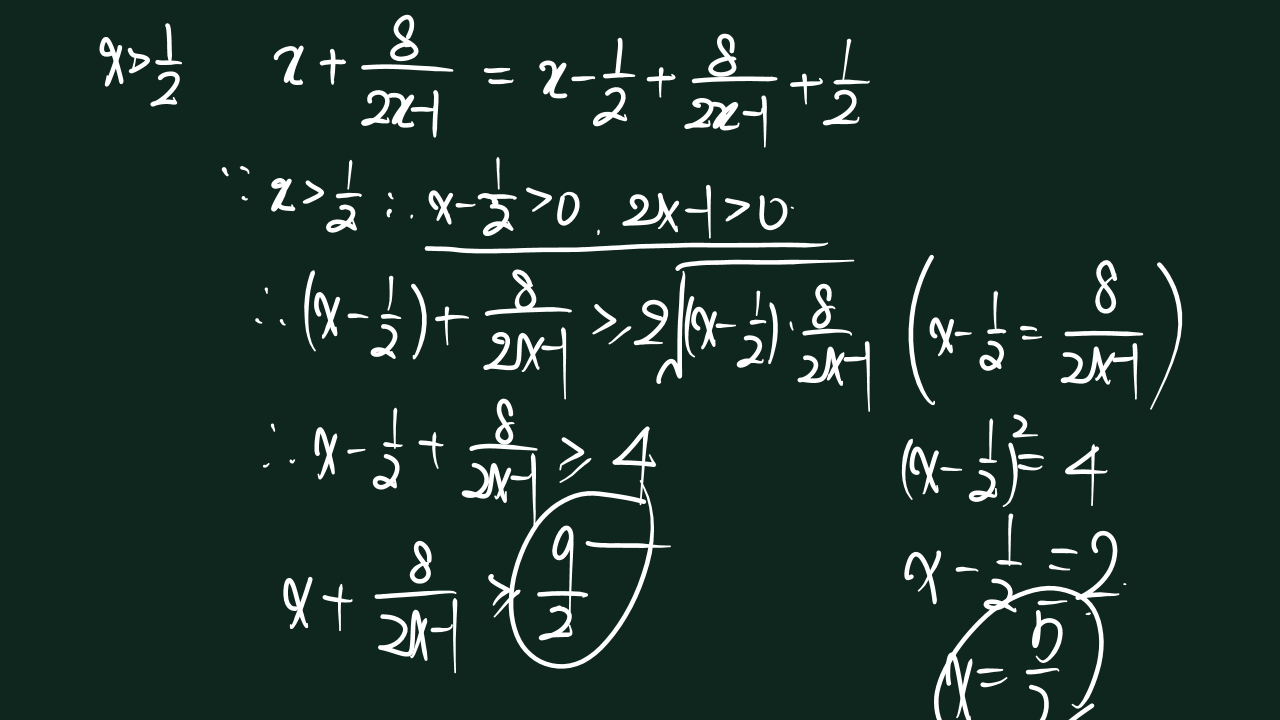 x > 1/2 x + 8/(2x-1) = x - 1/2 + 8/(2x-1) + 1/2
∵ x > 1/2 ∴ x - 1/2 > 0 . 2x-1 > 0
∴ (x - 1/2) + 8/(2x-1) ≥ 2√((x - 1/2) · 8/(2x-1)) (x - 1/2 = 8/(2x-1))
∴ x - 1/2 + 8/(2x-1) ≥ 4
(x - 1/2)² = 4
x + 8/(2x-1) ≥ 9/2
x - 1/2 = 2
x = 5/2